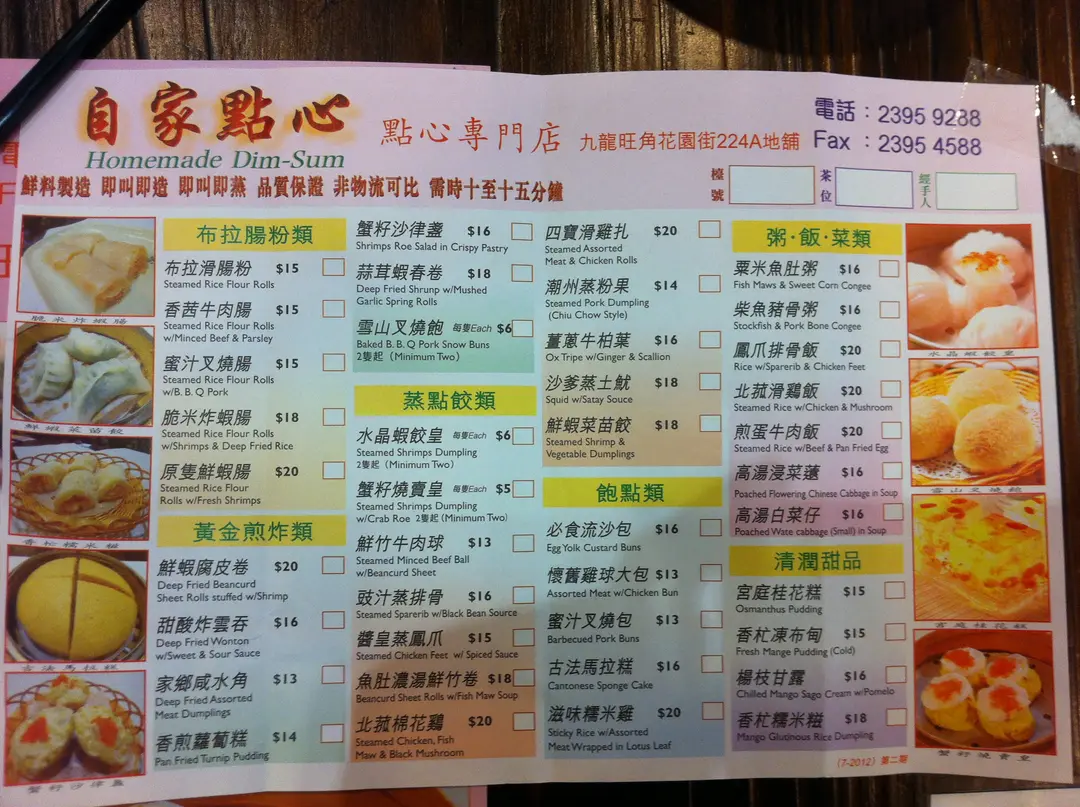 自家點心
Homemade Dim-Sum
點心專門店
九龍旺角花園街224A地舖
電話：2395 9288
Fax ：2395 4588
鮮料製造 即叫即造 即叫即蒸 品質保證 非物流可比 需時十至十五分鐘
檯號
茶位
經手人
布拉腸粉類
布拉滑腸粉 $15
Steamed Rice Flour Rolls
香茜牛肉腸 $15
Steamed Rice Flour Rolls
w/Minced Beef & Parsley
蜜汁叉燒腸 $15
Steamed Rice Flour Rolls
w/B. B. Q Pork
脆米炸蝦腸 $18
Steamed Rice Flour Rolls
w/Shrimps & Deep Fried Rice
原隻鮮蝦腸 $20
Steamed Rice Flour
Rolls w/Fresh Shrimps
黃金煎炸類
鮮蝦腐皮卷 $20
Deep Fried Beancurd
Sheet Rolls stuffed w/Shrimp
甜酸炸雲吞 $16
Deep Fried Wonton
w/Sweet & Sour Sauce
家鄉咸水角 $13
Deep Fried Assorted
Meat Dumplings
香煎蘿蔔糕 $14
Pan Fried Turnip Pudding
蟹籽沙律盞 $16
Shrimps Roe Salad in Crispy Pastry
蒜茸蝦春卷 $18
Deep Fried Shrunp w/Mushed
Garlic Spring Rolls
雪山叉燒飽 每隻Each $6
Baked B. B. Q Pork Snow Buns
2隻起（Minimum Two）
蒸點餃類
水晶蝦餃皇 每隻Each $6
Steamed Shrimps Dumpling
2隻起（Minimum Two）
蟹籽燒賣皇 每隻Each $5
Steamed Shrimps Dumpling
w/Crab Roe 2隻起（Minimum Two）
鮮竹牛肉球 $13
Steamed Minced Beef Ball
w/Beancurd Sheet
豉汁蒸排骨 $16
Steamed Sparerib w/Black Bean Source
醬皇蒸鳳爪 $15
Steamed Chicken Feet w/ Spiced Sauce
魚肚濃湯鮮竹卷 $18
Beancurd Sheet Rolls w/Fish Maw Soup
北菰棉花鷄 $20
Steamed Chicken, Fish
Maw & Black Mushroom
四寶滑雞扎 $20
Steamed Assorted
Meat & Chicken Rolls
潮州蒸粉果 $14
Steamed Pork Dumpling
(Chiu Chow Style)
薑蔥牛柏葉 $16
Ox Tripe w/Ginger & Scallion
沙爹蒸土魷 $18
Squid w/Satay Souce
鮮蝦菜苗餃 $18
Steamed Shrimp &
Vegetable Dumplings
飽點類
必食流沙包 $16
Egg Yolk Custard Buns
懷舊雞球大包 $13
Assorted Meat w/Chicken Bun
蜜汁叉燒包 $13
Barbecued Pork Buns
古法馬拉糕 $16
Cantonese Sponge Cake
滋味糯米雞 $20
Sticky Rice w/Assorted
Meat Wrapped in Lotus Leaf
粥·飯·菜類
粟米魚肚粥 $16
Fish Maws & Sweet Corn Congee
柴魚豬骨粥 $16
Stockfish & Pork Bone Congee
鳳爪排骨飯 $20
Rice w/Sparerib & Chicken Feet
北菰滑鷄飯 $20
Steamed Rice w/Chicken & Mushroom
煎蛋牛肉飯 $20
Steamed Rice w/Beef & Pan Fried Egg
高湯浸菜薳 $16
Poached Flowering Chinese Cabbage in Soup
高湯白菜仔 $16
Poached Wate cabbage (Small) in Soup
清潤甜品
宮庭桂花糕 $15
Osmanthus Pudding
香杧凍布甸 $15
Fresh Mange Pudding (Cold)
楊枝甘露 $16
Chilled Mango Sago Cream w/Pomelo
香杧糯米糍 $18
Mango Glutinous Rice Dumpling
(7-2012) 第二期
脆米炸蝦腸
鮮蝦菜苗餃
古法馬拉糕
蟹籽沙律盞
水晶蝦餃皇
雪山叉燒飽
宮庭桂花糕
蟹籽燒賣皇